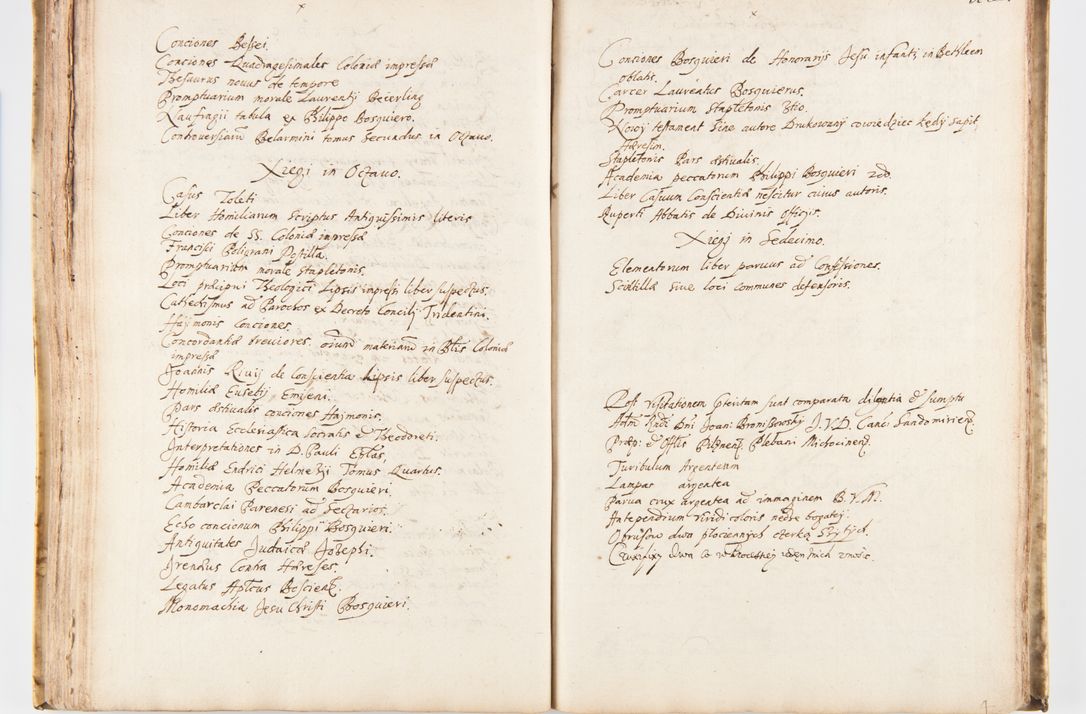 Conciones Bessei.
Conciones Quadragesimales Coloniæ impressæ
Thesaurus nouus de tempore
Promptuarium morale Laurentij Beierling
Naufragii tabula ex Philippo Bosquiero.
Controuersiarũ Belarmini tomus Secundus in Octauo.
Xięgi in Octauo.
Casus Toleti
Liber Homiliarum Scriptus Antiquissimis literis
Conciones de SS. Coloniæ impressæ
Francisci Poligrani Postilla.
Promptuarium morale Stapletonis.
Loci præcipui Theologici Lipsis impressi liber suspectus.
Cathechismus ad Parochos ex Decreto Concilij Tridentini.
Haÿmonis Conciones.
Concordantiæ breuiores omniũ materiarũ in Coloniæ
impressæ
Joannis Riuij de Conscientia Lipsis liber suspectus.
Homiliæ Eusebij Emiseni.
Pars æstiualis conciones Haÿmonis.
Historia Ecclesiastica Socratis & Theodoreti.
Interpretationes in D. Pauli Eplas,
Homiliæ Endrici Helmezij Tomus Quartus.
Academia Peccatorum Bosquieri.
Cambarolai Parenesi ad Sectarios.
Echo concionum Philippi Bosquieri.
Antiquitates Judaicæ Josephi.
Irenæus Contra Hæreses.
Legatus Aplicus
Monomachia Jesu Christi Bosquieri.
Conciones Bosquieri de Honorarijs Jesu infanti in Bethleem
oblatis.
Carcer Laureatus Bosquierus.
Promptuarium Stapletonis
Nowy testament Sine autore Drukowany cowiedziec kędy sapit
Hæresim.
Stapletonis Pars æstiualis.
Academia peccatorum Philippi Bosquieri 2do.
Liber Casuum Conscientiæ nescitur cuius autoris.
Ruperti Abbatis de Diuinis officijs.
Xięgi in Sedecimo.
Elementorum liber paruus ad Confessiones.
Scintillæ siue loci communes defensoris.
Post visitationem sunt comparata & sumptu
Dni Joani J.V.D. Canci Sandomirien
& Plebani
Turibulum Argenteum
Lampas argentea
Parua crux argentea ad immaginem B.V.M.
Antependium viridi coloris bogatey.
dwa płociennych
dwa